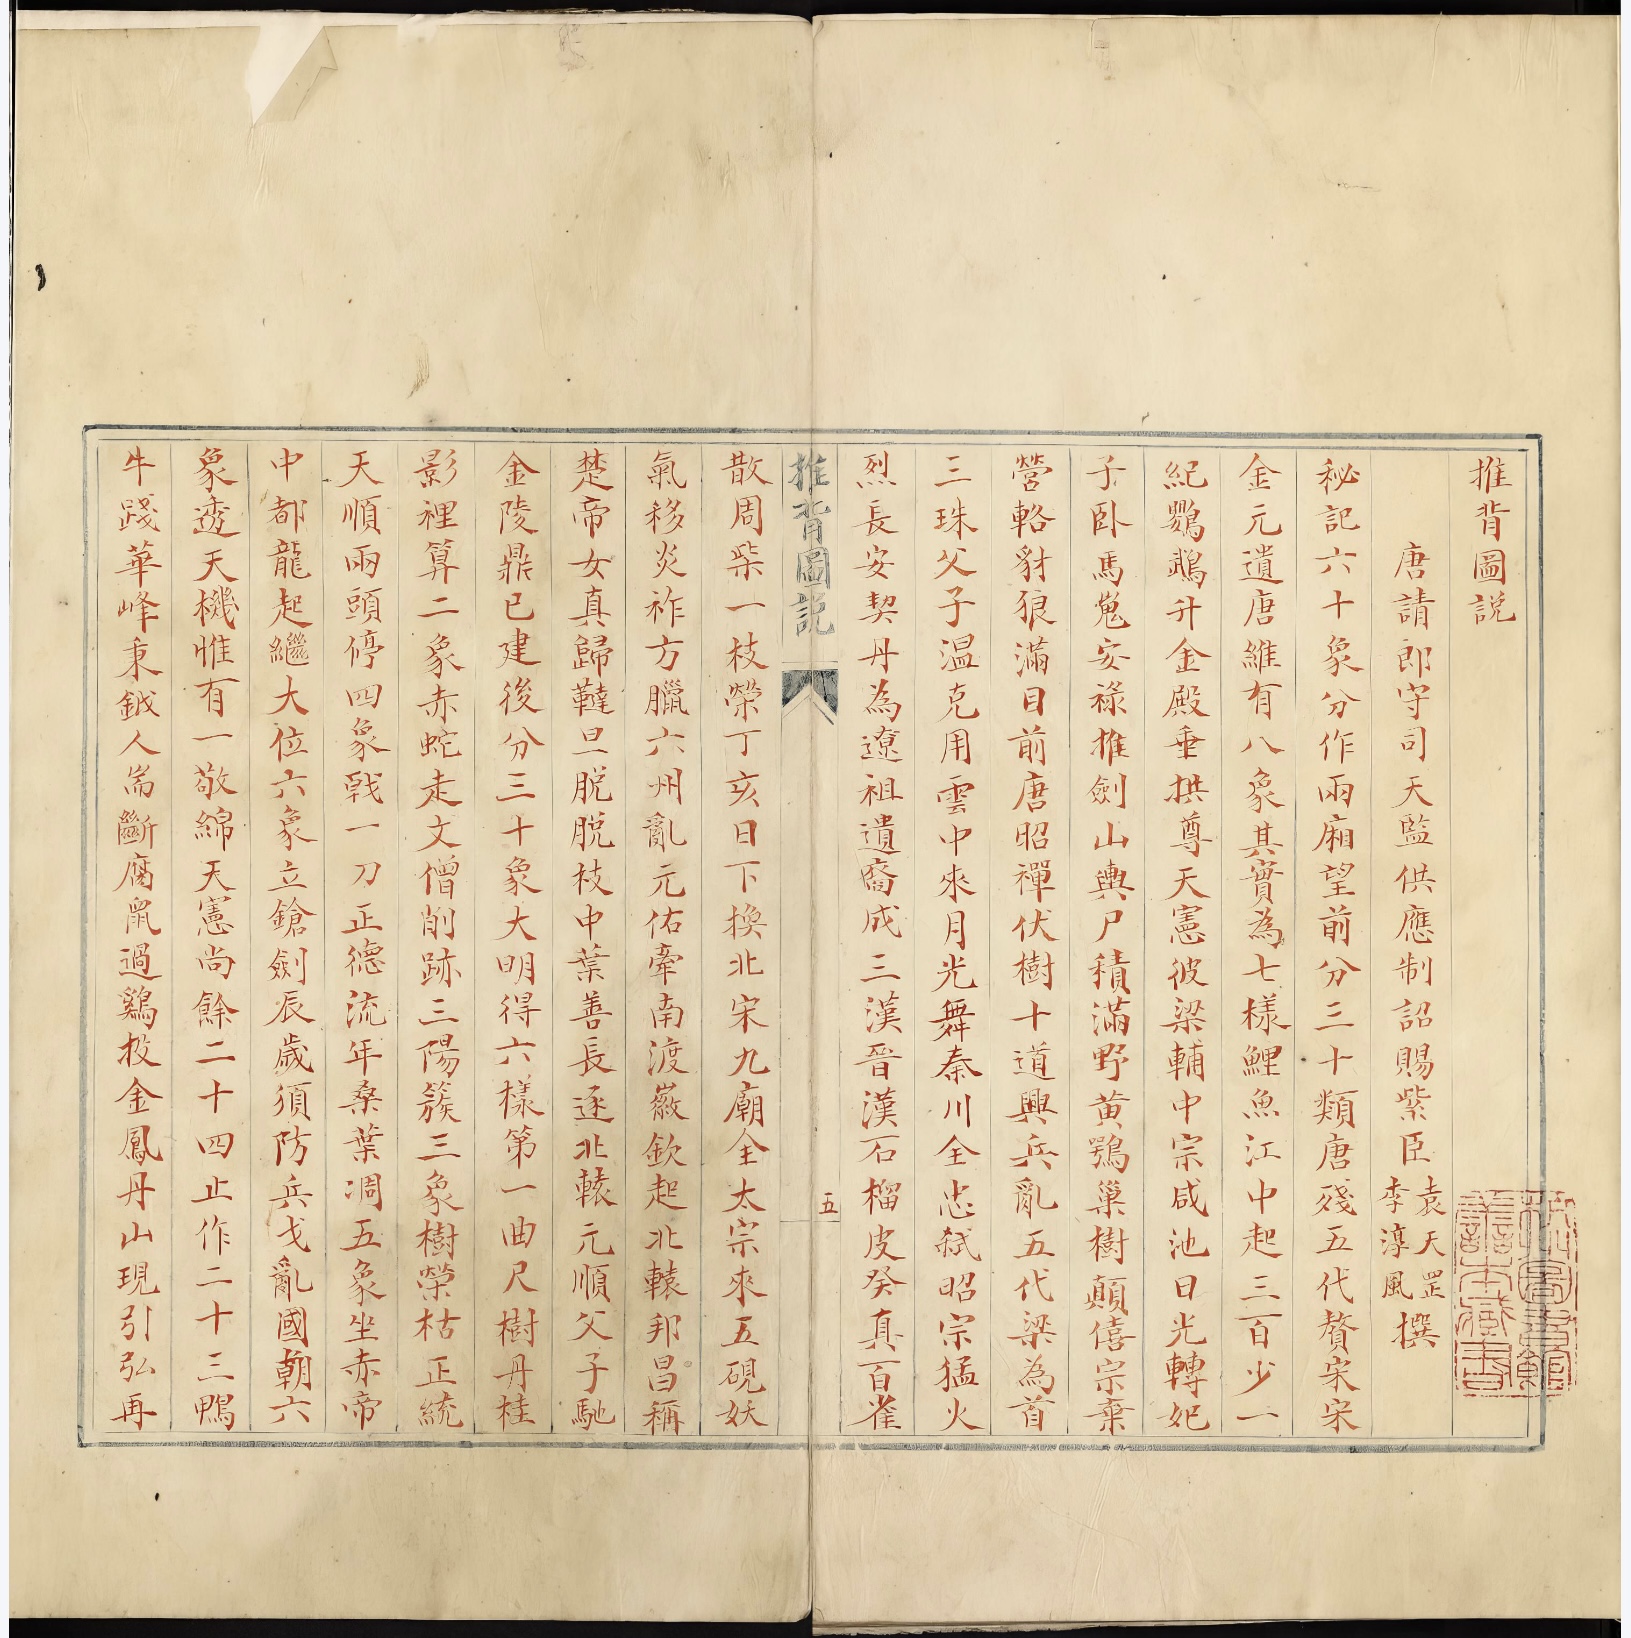 推背圖説
唐請郎守司天監供應制詔賜紫臣袁天罡李淳風撰
秘記六十象分作兩廂望前分三十類唐殘五代贅宋宋
金元遺唐維有八象其實為七樣鯉魚江中起三百少一
紀鸚鵡升金殿垂拱尊天憲彼梁輔中宗咸池日光轉妃
子卧馬嵬安祿推劍山輿尸積滿野黃鶚巢樹顛僖宗棄
營輅豺狼滿目前唐昭禪伏樹十道興兵亂五代梁為首
三珠父子温克用雲中來月光舞秦川全忠弑昭宗猛火
烈長安契丹為遼祖遺裔成三漢晉漢石榴皮癸真百雀
推背圖説
五
散周柴一枝榮丁亥日下換北宋九廟全太宗來五硯妖
氣移炎祚方臘六州亂元佑牽南渡徽欽起北轅邦昌稱
楚帝女真歸韃旦脱脱枝中葉善長逐北轅元順父子馳
金陵鼎已建後分三十象大明得六樣第一曲尺樹丹桂
影裡算二象赤蛇走文僧削跡三陽簇三象樹榮枯正統
天順兩頭停四象戰一刀正德流年桑葉凋五象坐赤帝
中都龍起繼大位六象立鎗劍辰歲須防兵戈亂國朝六
象透天機惟有一敬綿天憲尚餘二十四止作二十三鴨
牛踐華峰秉鉞人耑斷腐鼠過鷄投金鳳丹山現引弘再